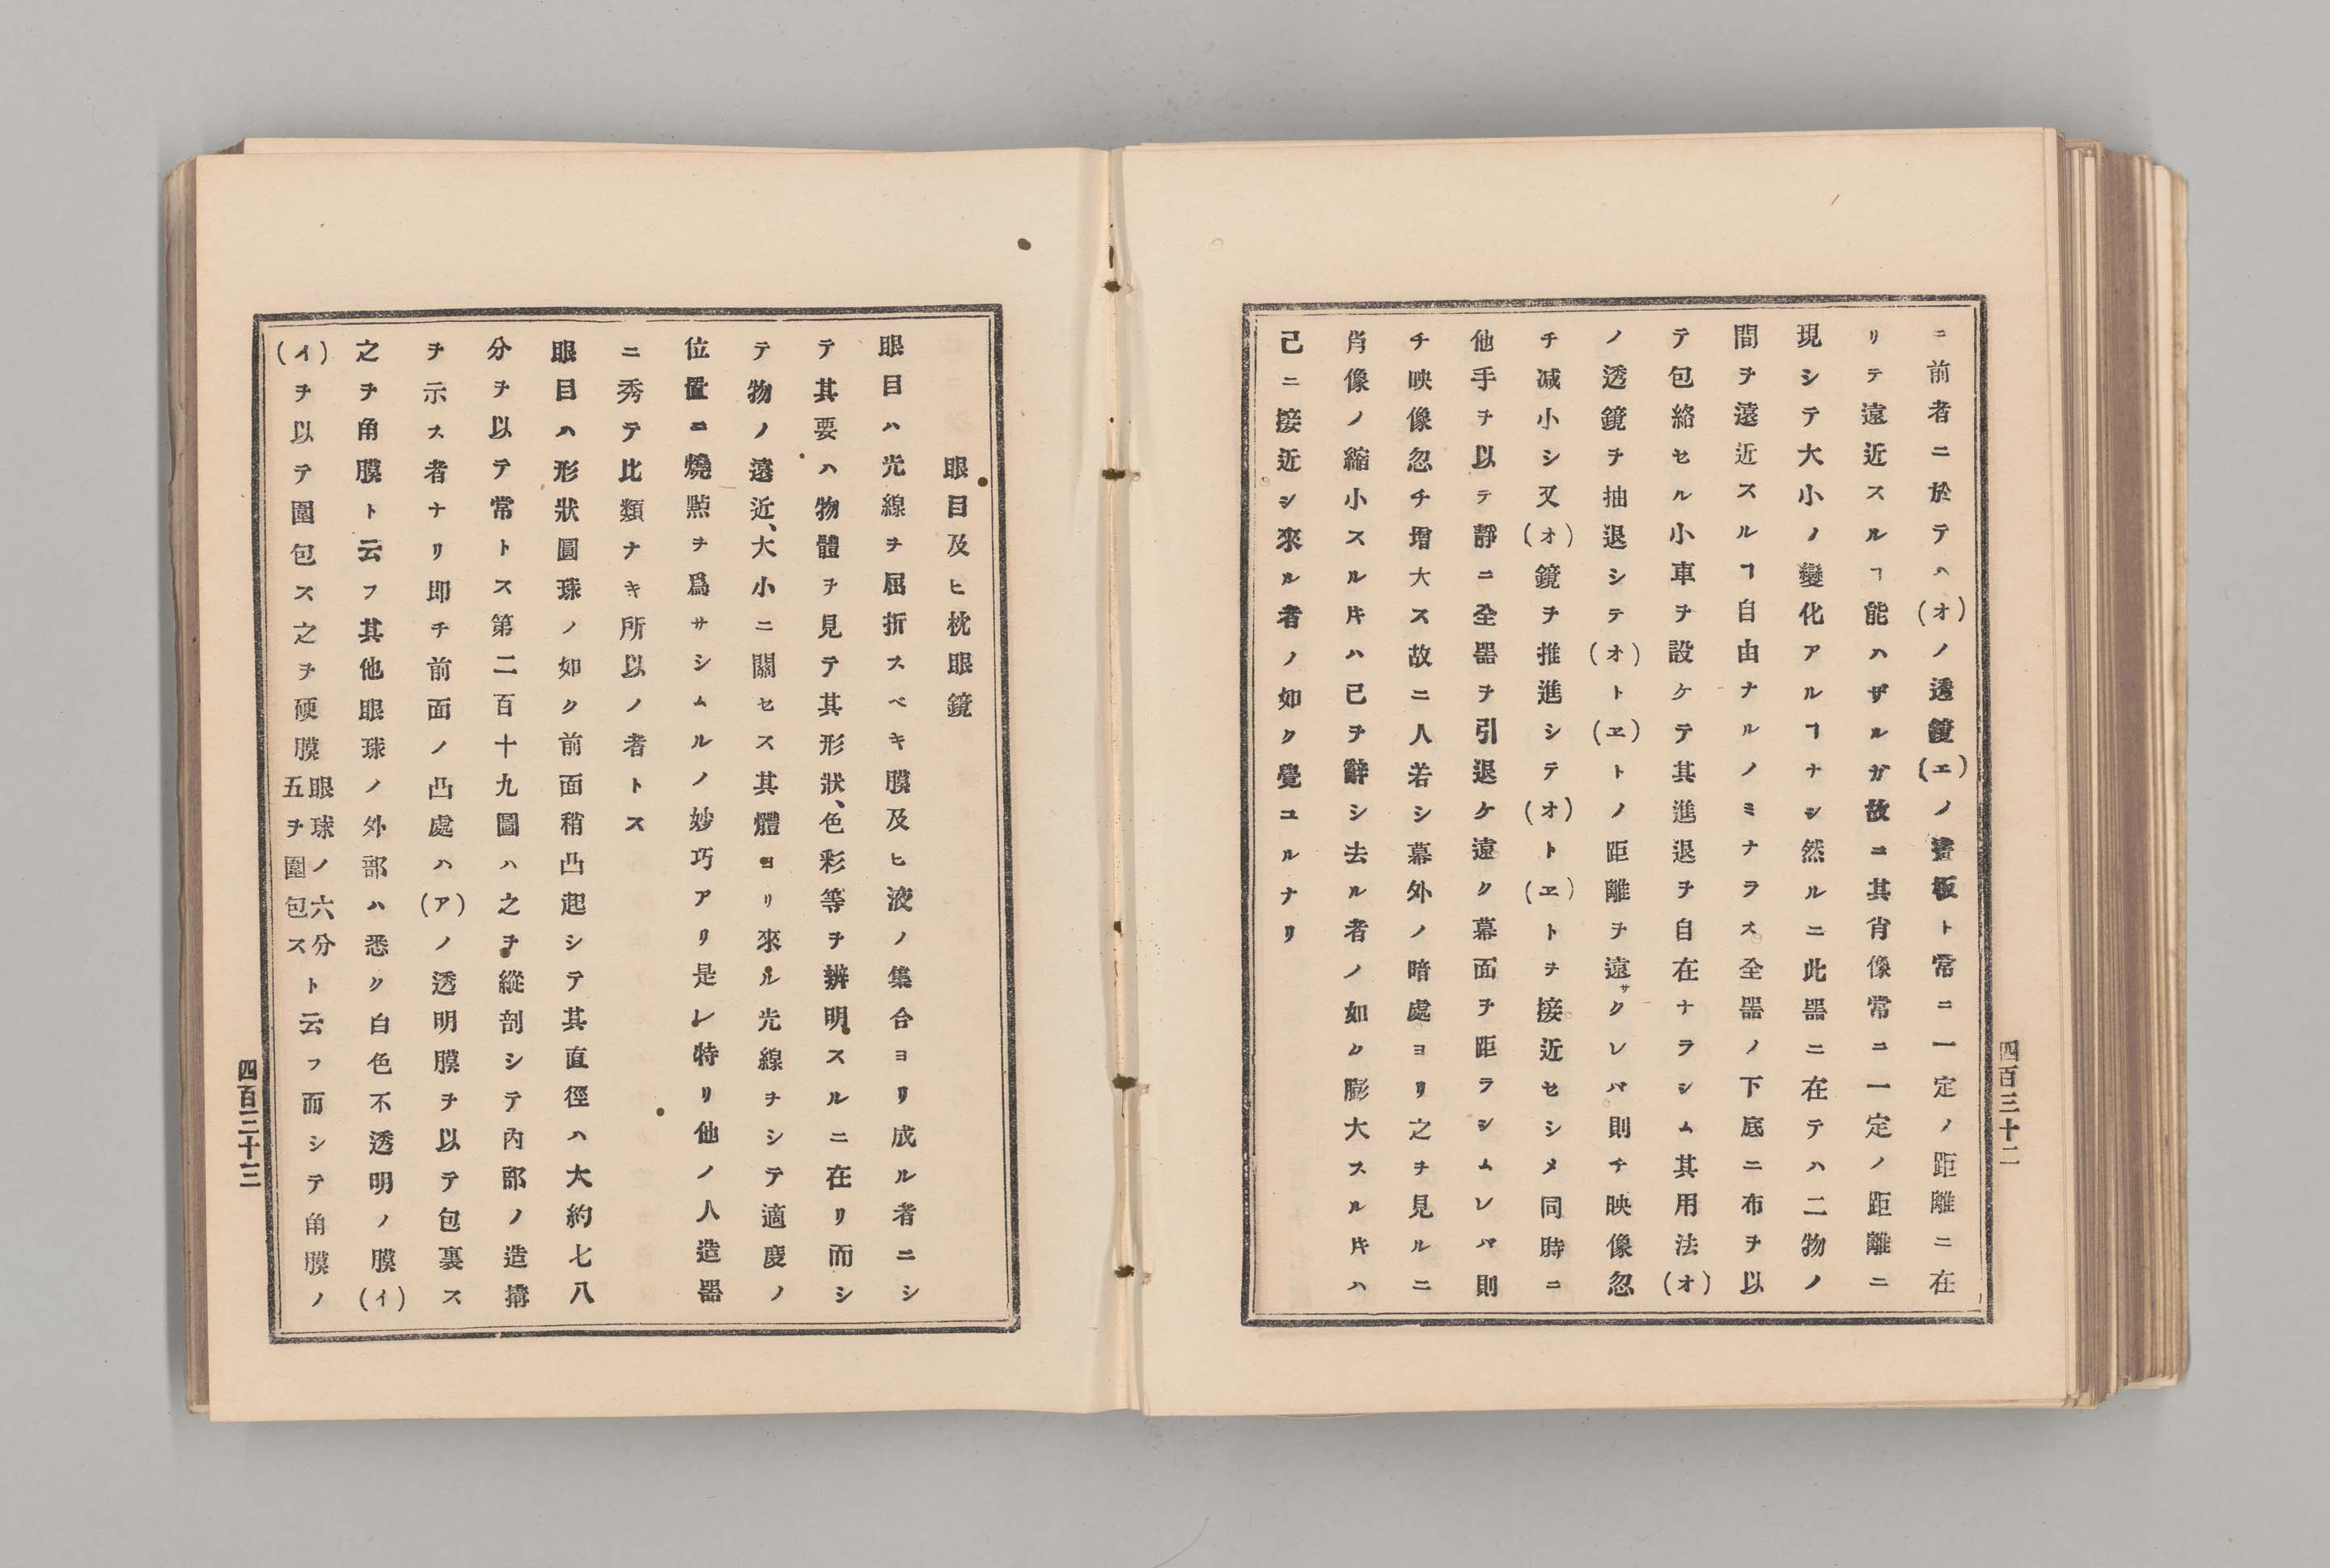 ニ前者ニ於テハ(オ)ノ透鏡(エ)ノ畫板ト常ニ一定ノ距離ニ在
リテ遠近スルヿ能ハザルガ故ニ其肖像常ニ一定ノ距離ニ
現シテ大小ノ變化アルヿナシ然ルニ此器ニ在テハ二物ノ
間ヲ遠近スルヿ自由ナルノミナラス全器ノ下底ニ布ヲ以
テ包絡セル小車ヲ設ケテ其進退ヲ自在ナラシム其用法(オ)
ノ透鏡ヲ抽退シテ(オ)ト(ヱ)トノ距離ヲ遠サクレバ則チ映像忽
チ减小シ又(オ)鏡ヲ推進シテ(オ)ト(ヱ)トヲ接近セシメ同時ニ
他手ヲ以テ靜ニ全器ヲ引退ケ遠ク幕面ヲ距ラシムレバ則
チ映像忽チ增大ス故ニ人若シ幕外ノ暗處ヨリ之ヲ見ルニ
肖像ノ縮小スルㇳキハ己ヲ辭シ去ル者ノ如ク膨大スルㇳキハ
己ニ接近シ來ル者ノ如ク覺ユルナリ
四百三十二
眼目及ヒ枕眼鏡
眼目ハ光線ヲ屈折スベキ膜及ヒ液ノ集合ヨリ成ル者ニシ
テ其要ハ物體ヲ見テ其形狀、色彩等ヲ辨明スルニ在リ而シ
テ物ノ遠近、大小ニ關セス其體ヨリ來ル光線ヲシテ適度ノ
位置ニ燒㸃ヲ爲サシムルノ妙巧アリ是レ特リ他ノ人造器
ニ秀テ比類ナキ所以ノ者トス
眼目ハ形狀圓球ノ如ク前面稍凸起シテ其直徑ハ大約七八
分ヲ以テ常トス第二百十九圖ハ之ヲ縱剖シテ內部ノ造搆
ヲ示ス者ナリ即チ前面ノ凸處ハ(ア)ノ透明膜ヲ以テ包裹ス
之ヲ角膜ト云フ其他眼球ノ外部ハ悉ク白色不透明ノ膜(イ)
(イ)ヲ以テ圍包ス之ヲ硬膜眼球ノ六分五ヲ圍包スト云フ而シテ角膜ノ
四百三十三